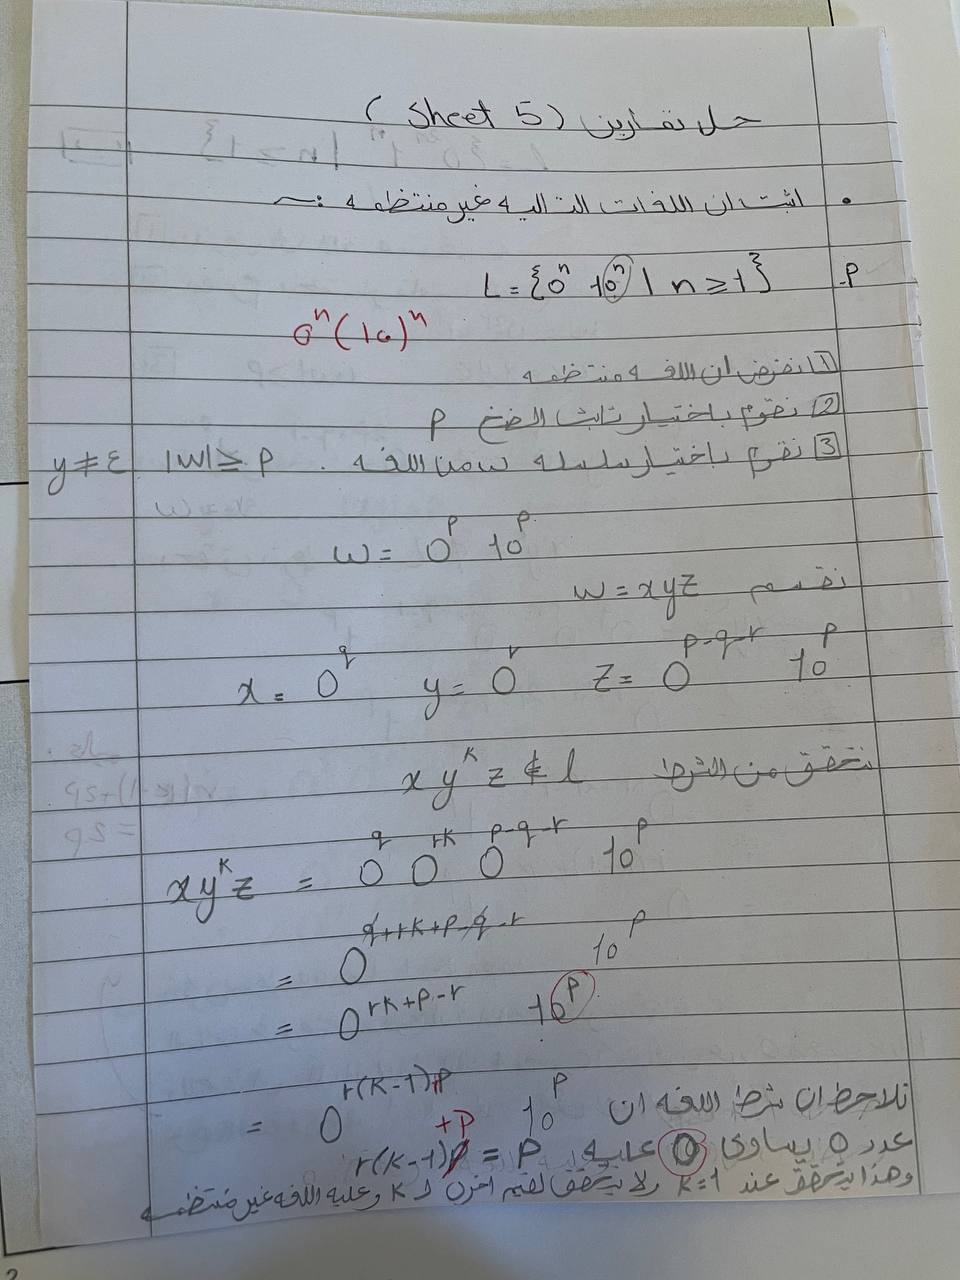 حل تمارين (Sheet 5)
• اثبت ان اللغات التاليه غير منتظمه :~
P- L = {0ⁿ 10ⁿ | n ≥ 1}
0ⁿ(10)ⁿ
1 نفترض ان اللغه منتظمه
2 نقوم باختيار ثابت الضخ P
3 نقوم باختيار سلسله w من اللغه . |w| ≥ P y ≠ ε
w = 0ᴾ 10ᴾ
نقسم w = xyz
x = 0^q y = 0^r z = 0^(p-q-r) 10^p
نتحقق من الشرط xy^k z ∉ L
xy^k z = 0^q 0^rk 0^(p-q-r) 10^p
= 0^(q+rk+p-q-r) 10^p
= 0^(rk+p-r) 10^p
= 0^(r(k-1)+p) 10^p نلاحظ ان شرط اللغه ان
عدد 0 يساوي 0 عليه r(k-1)+p = p
وهذا يتحقق عند k=1 ولا يتحقق لقيم اخرى لـ k وعليه اللغه غير منتظمه